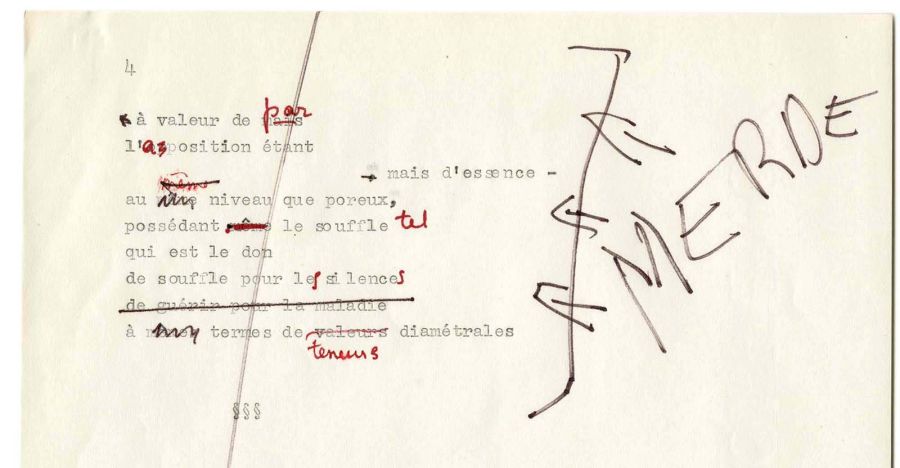 4
par
à valeur de mais
position étant
mais d'essence -
même
au niveau que poreux,
possédant même le souffle tel
qui est le don
de souffle pour les silences
de guérir pour la maladie
à termes de valeurs diamétrales
teneurs
§§§
MERDE